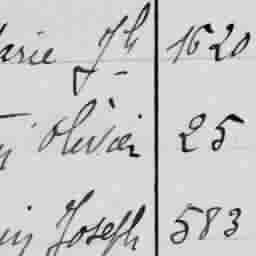 arie Jh 1620
Olivier 25
Joseph 583